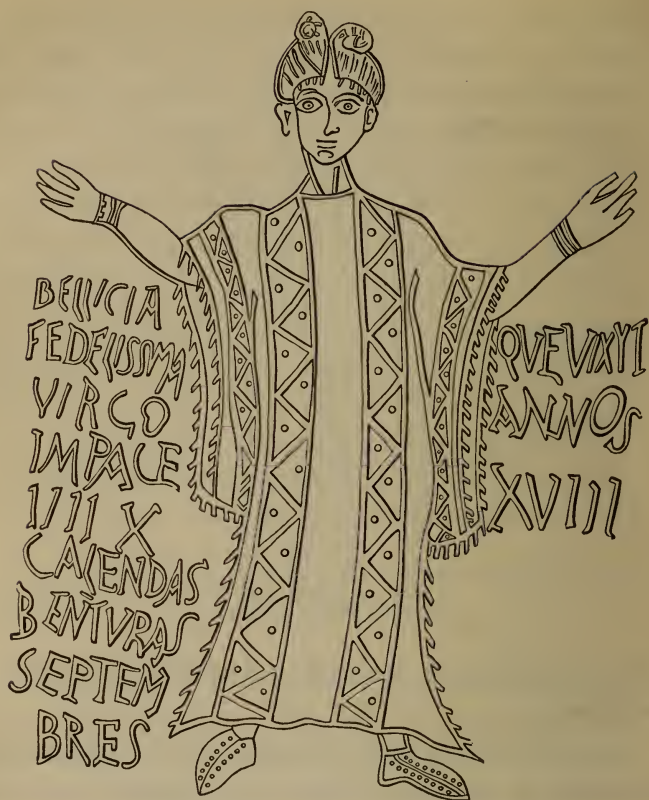 BELLICIA
FEDELISSMA
VIRGO
IMPACE
IIII X
CALENDAS
BENTURAS
SEPTEM
BRES
QVEVIXVI
ANNOS
XVIII